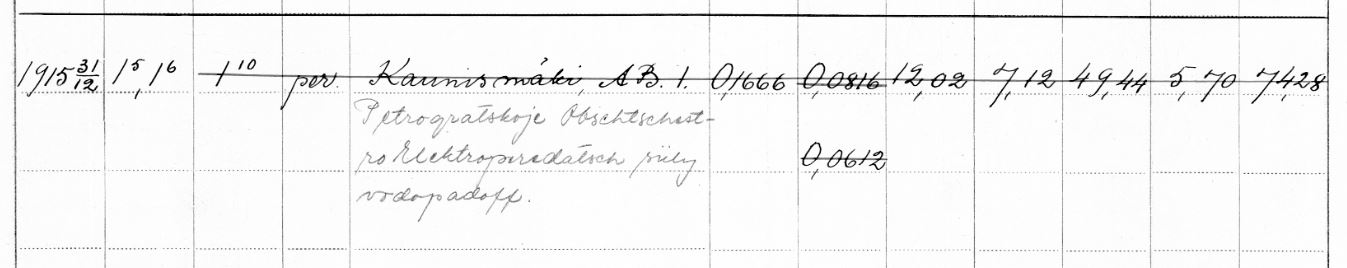 1915 31/12 1⁵, 1⁶ 1¹⁰ per. Kaunismäki, AB. 1. 0,1666 0,0816 12,02 7,12 49,44 5,70 74,28
Petrogratskoje Obschtschest-
ro Elektroperedatsch siily 0,0612
vodopadoff.